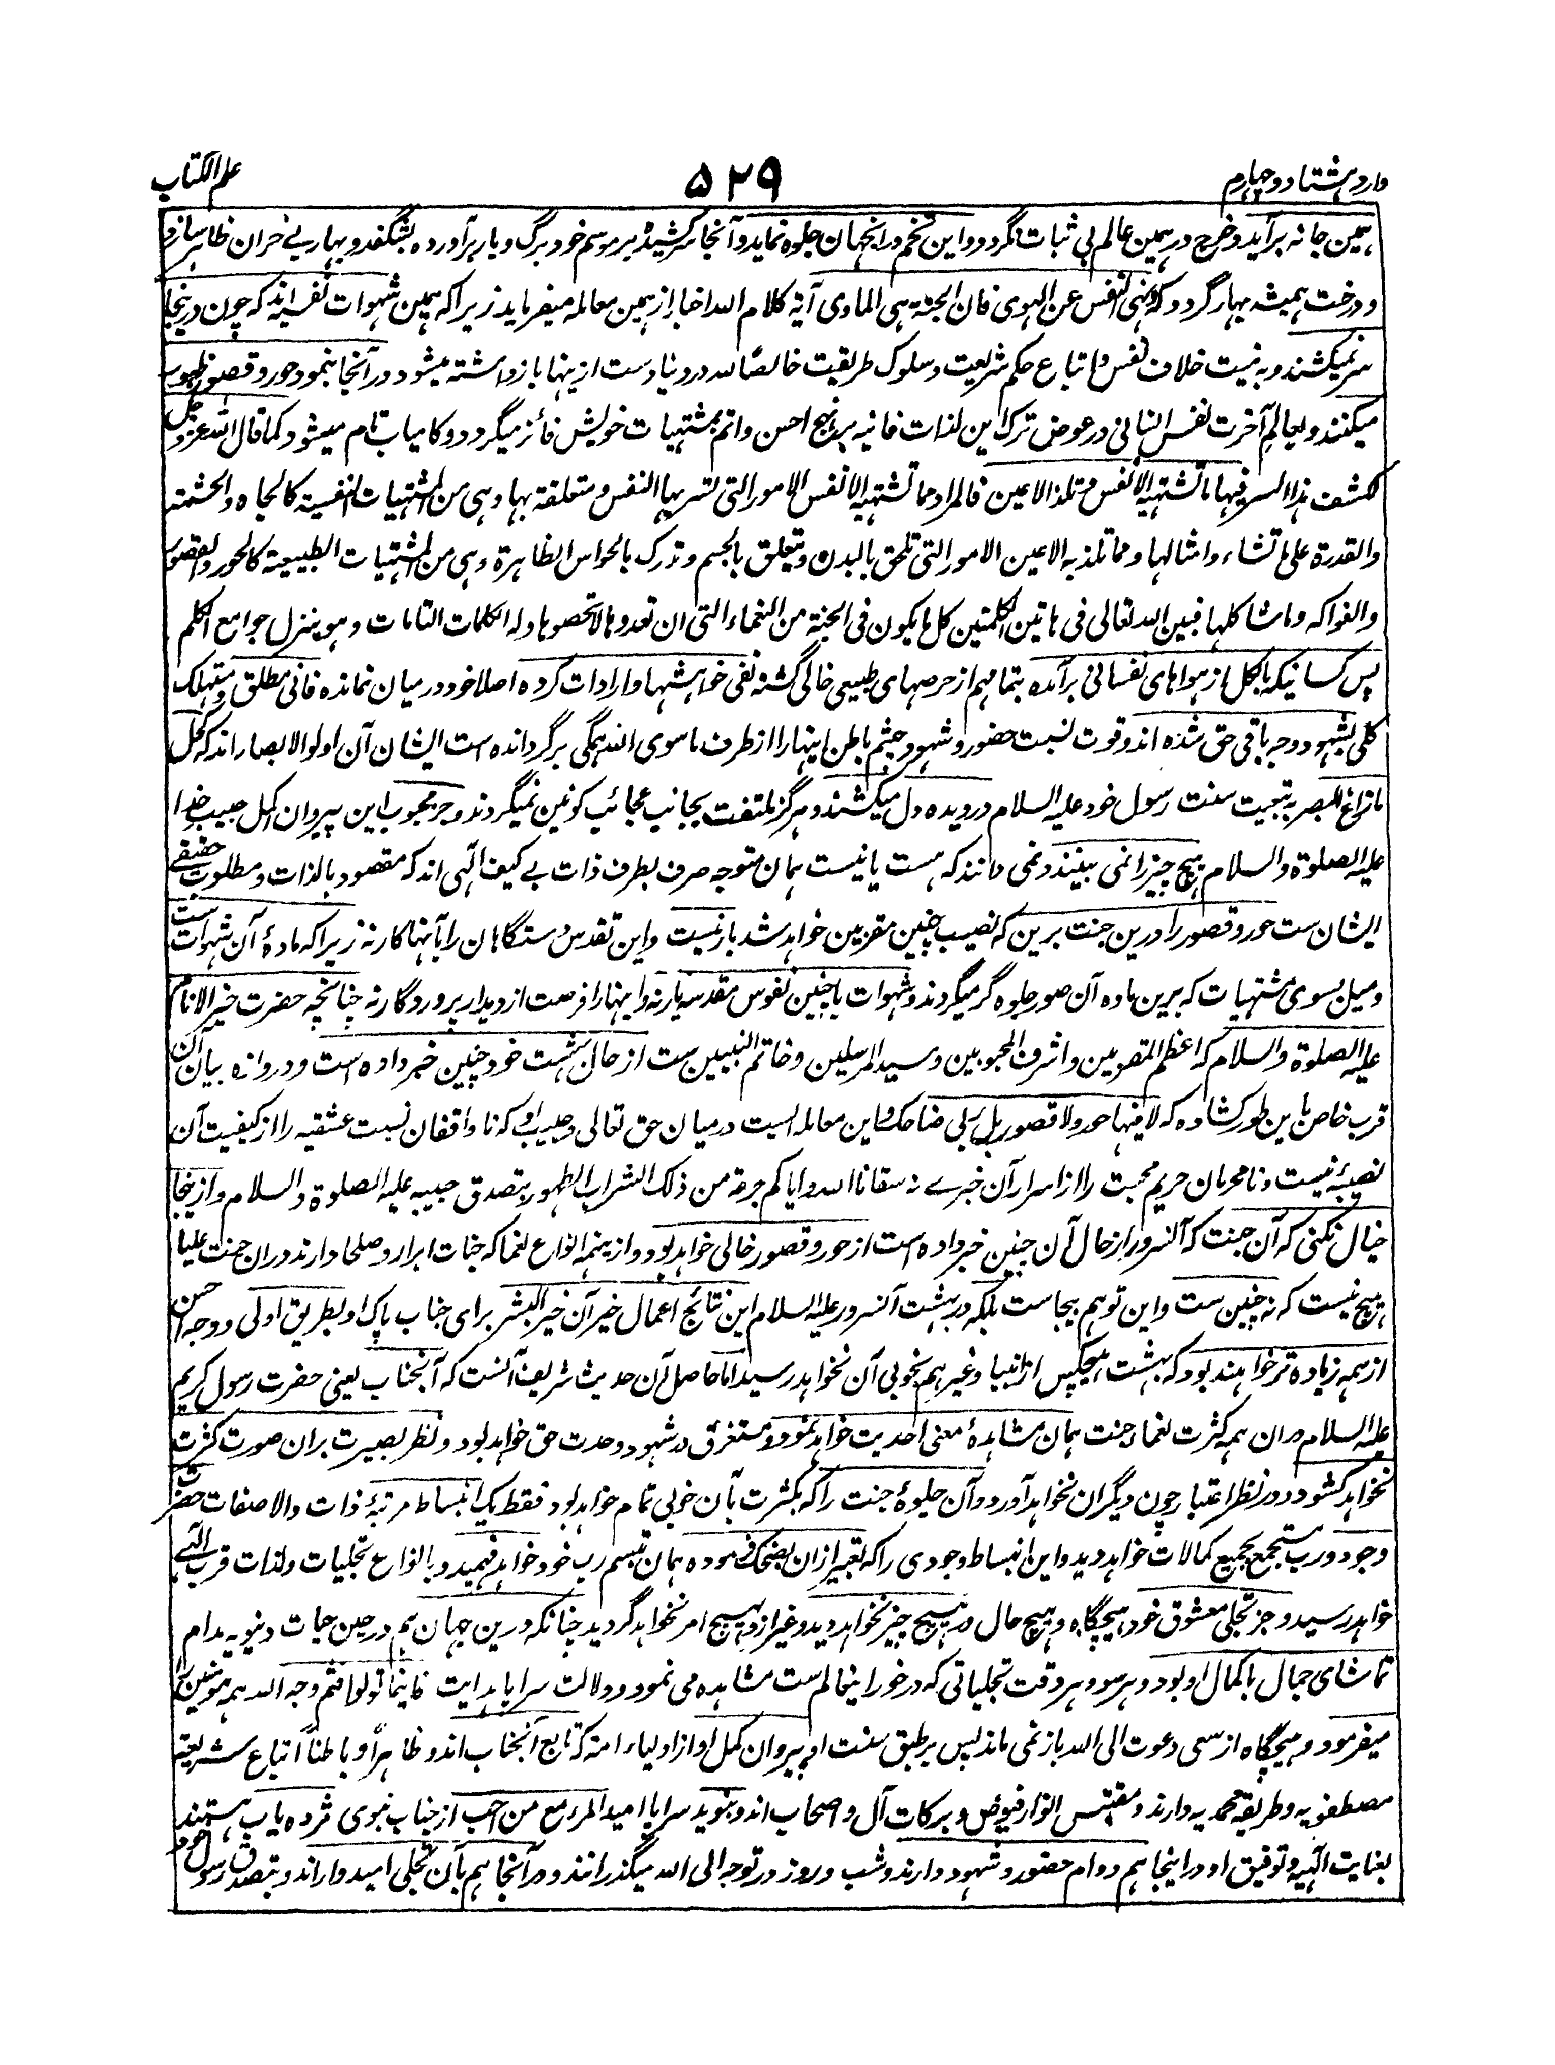 وارد هشتاد و چهارم
۵۲۹
علم الکتاب
همین جا نه برآید و خرج در همین عالم بی ثبات نگردد و این تخم در انجهان جلوه نماید و آنجا سر کشیده بر موسم خود برگ و بار برآورده بشگفد و بهار بے خزان ظاهر سازد
و درخت همیشه بهار گردد که ونهی النفس عن الهوی فان الجنة هی الماوی آیهٔ کلام الله اخبار از همین معامله میفرماید زیرا که همین شهوات نفسیه اند که چون درینجا
سر نمیکشند و به نیت خلاف نفس و اتباع حکم شریعت و سلوک طریقت خالصاً لله در دنیا دست ازینها بازداشته میشود در آنجا بنمود حور و قصور ظهور
میکنند و بعالم آخرت نفس انسانی در عوض ترک این لذات فانیه بر نهج احسن و اتم بمشتهیات خویش فائز میگردد و کامیاب تام میشود کما قال الله عز و جل
لکشف هذا السر فیها ما تشتهیه الانفس و تلذ الاعین فالمراد مما تشتهیه الانفس الامور التی تسر بها النفس و متعلقة بها و هی من المشتهیات النفسیة کالجاه و الحشمة
والقدرة علی ما تشاء و امثالها و مما تلذ به الاعین الامور التی تلحق بالبدن و تتعلق بالجسم و تدرک بالحواس الظاهرة و هی من المشتهیات الطبیعیة کالحور و القصور
والفواکه و ما شاکلها فبین الله تعالی فی هاتین الکلمتین کل ما یکون فی الجنة من النعماء التی ان تعدوها لا تحصوها و له الکلمات التامات و هو منزل جوامع الکلم
پس کسانیکه بالکل از هواهای نفسانی برآمده بتمامهم از حرصهای طبیعی خالی گشته نفی خواهشها و ارادات کرده اصلا خود درمیان نمانده فانی مطلق و مستهلک
کلی بشهود وجه باقی حق شده اند و قوت نسبت حضور و شهود چشم باطن اینها را از طرف ماسوی الله همگی برگردانده است ایشان آن اولو الابصار اند که کحل
ما زاغ البصر به تبعیت سنت رسول خود علیه السلام در دیده دل میکشند و هرگز ملتفت بجانب عجائب کونین نمیگردند و جز محبوب این پیروان اکمل حبیب خدا
علیه الصلوة والسلام هیچ چیز را نمی بینند و نمی دانند که هست یا نیست همان متوجه صرف بطرف ذات بے کیف الٓهی اند که مقصود بالذات و مطلوب حقیقے
ایشان ست حور و قصور را درین جنت برین که نصیب چنین مقربین خواهد شد بار نیست و این تقدس دستگاهان را بآنها کار نه زیرا که مادهٔ آن شهوات ست
و میل بسوی مشتهیات که برین ماده آن صور جلوه گر میگردند و شهوات با چنین نفوس مقدسه یار نه و اینها را فرصت از دیدار پروردگار نه چنانچه حضرت خیر الانام
علیه الصلوة والسلام که اعظم المقربین و اشرف المحبوبین و سید المرسلین و خاتم النبیین ست از حال بهشت خود چنین خبر داده است و دروازه بیان آن
قرب خاص باین طور کشاده که لا فیها حور و لا قصور بل ربی ضاحکا و این معامله ایست درمیان حق تعالی و حبیب او که ناواقفان نسبت عشقیه را از کیفیت آن
نصیبهٔ نیست و نامحرمان حریم محبت را از اسرار آن خبرے نه سقانا الله و ایاکم جرعة من ذلک الشراب الطهور بتصدق حبیبه علیه الصلوة والسلام و از ینجا
خیال نکنی که آن جنت که آنسرور از حال آن چنین خبر داده است از حور و قصور خالی خواهد بود و ازینهمه انواع نعما که جنات ابرار و صلحا دارند دران جنت علیا
هیچ نیست که نه چنین ست و این توهم بیجاست بلکه در بهشت آنسرور علیه السلام این نتائج اعمال خیر آن خیر البشر برای جناب پاک او بطریق اولی و وجه احسن
از همه زیاده تر خواهند بود که بهشت هیچکس از انبیا و غیرهم بخوبی آن نخواهد رسید اما حاصل آن حدیث شریف آنست که آنجناب یعنی حضرت رسول کریم
علیه السلام دران همه کثرت نعماء جنت همان مشاهدهٔ معنی احدیت خواهد نمود و مستغرق در شهود وحدت حق خواهد بود و نظر بصیرت بران صورت کثرت
نخواهد کشود و در نظر اعتبار چون دیگران نخواهد آورد و آن جلوهٔ جنت را که بکثرت بآن خوبی تمام خواهد بود فقط یک انبساط مرتبهٔ ذات والا صفات حضرت
وجود و رب مستجمع بجمیع کمالات خواهد دید و این انبساط وجودی را که تعبیر ازان بضحک فرموده همان تبسم رب خود خواهد فهمید و بانواع تجلیات و لذات قرب الٓهے
خواهد رسید و جز تجلی معشوق خود هیچگاه و هیچ حال در هیچ چیز نخواهد دید و غیر از و بهیچ امر نخواهد گردید چنانکه درین جهان هم در حین حیات دنیویه مدام
تماشای جمال باکمال او بود و هر سو و هر وقت تجلیاتی که در خور اینعالم ست مشاهده می نمود و دلالت سراپا هدایت فاینما تولوا فثم وجه الله همه مؤمنین را
میفرمود و هیچگاه از سعی دعوت الی الله باز نمی ماند پس بر طبق سنت او پیروان کمل او از اولیاء امته که تابع آنجناب اند و ظاهراً و باطناً اتباع شریعت
مصطفویه و طریقه محمدیه دارند و مقتبس انوار فیوض و برکات آل و اصحاب اند و بنوید سراپا امید المرء مع من احب از جناب نبوی مژده یاب هستند
بعنایت الٓهیه و توفیق او در اینجا هم دوام حضور و شهود دارند و شب و روز در توجه الی الله میگذرانند و در آنجا هم بآن تجلی امیدوار اند و بتصدق رسول خود